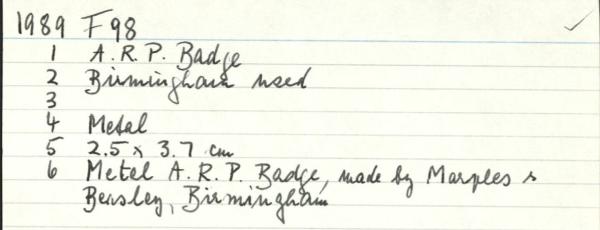 1989 F98
1 A.R.P. Badge
2 Birmingham used
3
4 Metal
5 2.5 x 3.7 cm
6 Metal A.R.P. Badge, made by Marples &
Beasley, Birmingham